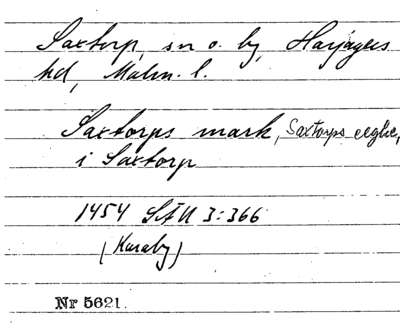 Saxtorp, sn o. by, Harjagers
hd, Malm. l.
Saxtorps mark, Saxtorps eeghe,
i Saxtorp
1454 SÄU 3:366
(Karaby)
Nr 5621.